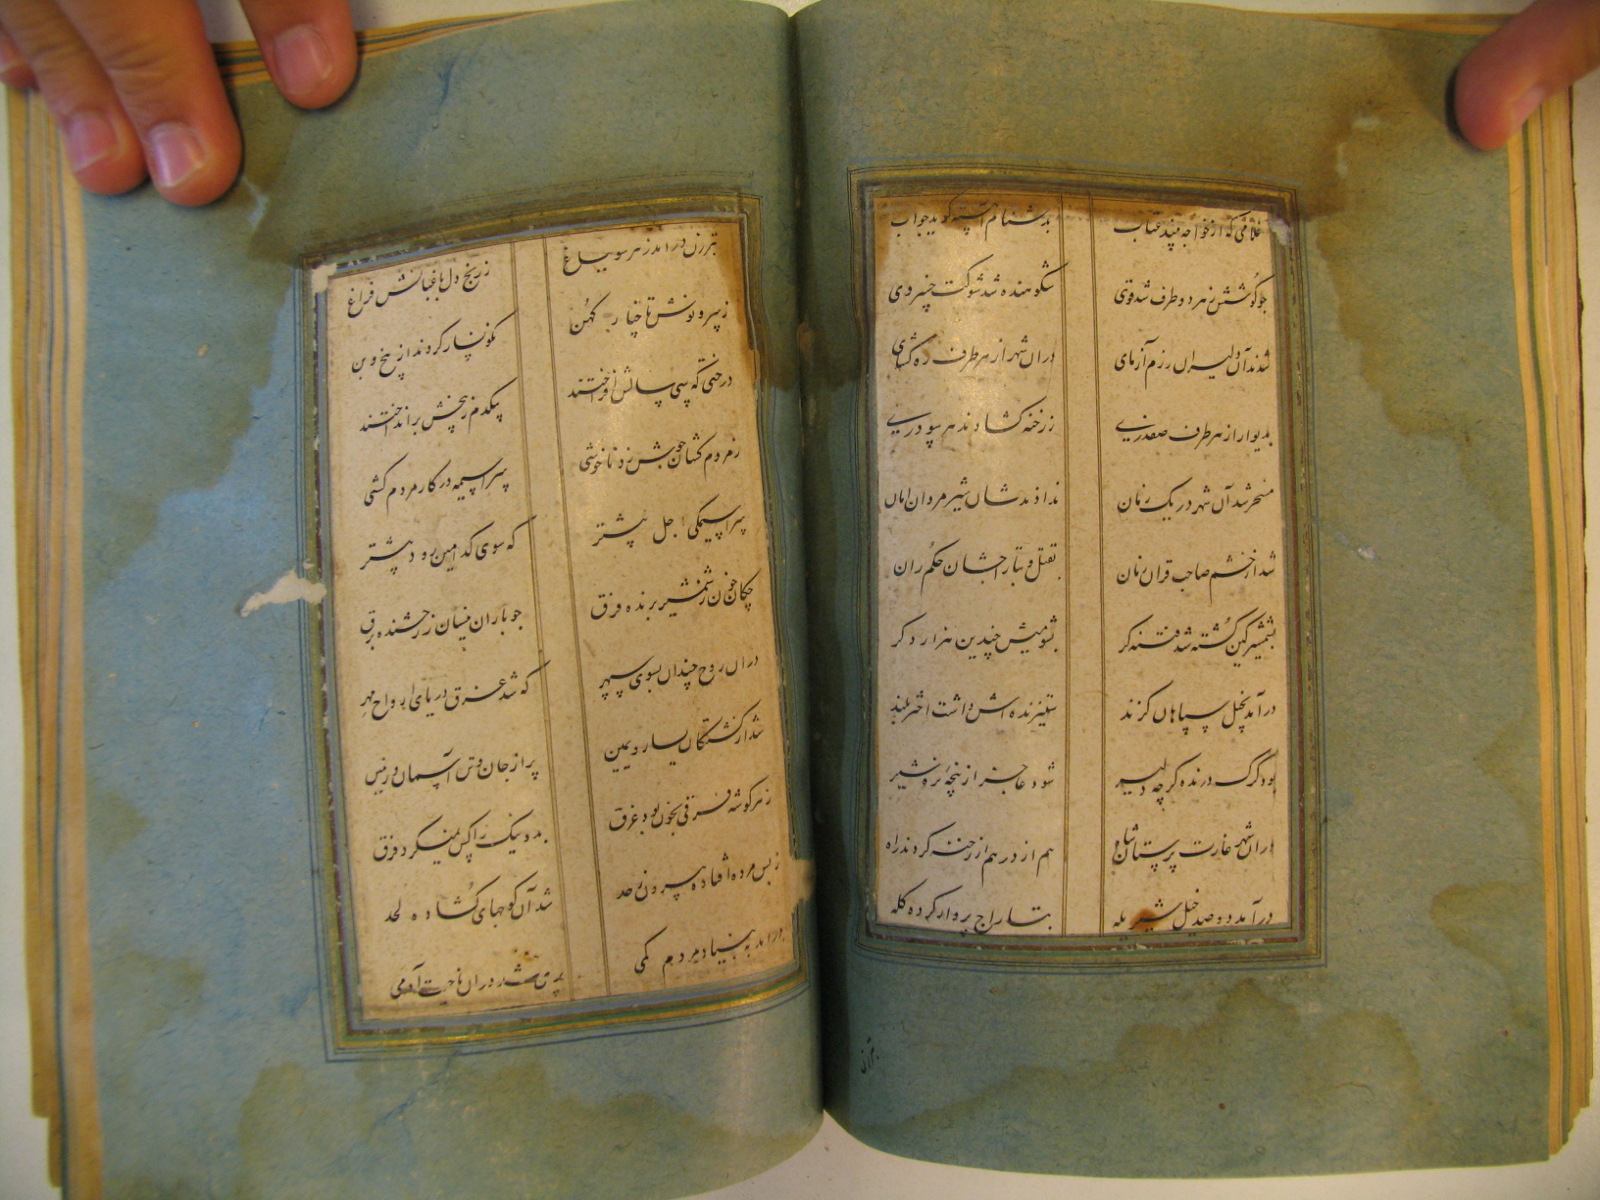 غلامی که از خواجه بیند عتاب بدشنام آهسته گوید جواب
چو کوشش ز هر دو طرف شد قوی شکوهنده شد شوکت خسروی
شدند آن دلیران رزم آزمای در آن شهر از هر طرف ره گشای
بدیوار از هر طرف صفدری ز رخنه گشادند هر سو دری
مسخر شد آن شهر در یک زمان ندادندشان شیرمردان امان
شد از خشم صاحب قران زمان بقتل و بتاراجشان حکم ران
بشمشیر کین کشته شد فتنه گر بشومیش چندین هزار دگر
درآمد بخیل سپاهان گزند ستیزنده اش داشت اختر بلند
بود گرگ درنده گرچه دلیر شود عاجز از پنجه نره شیر
در آن شهر غارت پرستان شاه هم از در هم از رخنه کردند راه
درآمد دو صد خیل شیر یله بتاراج پروار کرده گله
تبرزن درآمد ز هر سو بباغ ز رنج دل باغبانش فراغ
ز پیر و نوش تا چنار کهن نگونسار کردند از بیخ و بن
درختی که سی سالش افراختند بیکدم ز بیخش برانداختند
ز مردم کشان جوش زد ناخوشی سراسیمه در کار مردم کشی
سراسیمگی اجل بیشتر که سوی کدامین رود پیشتر
چکان خون ز شمشیر برنده فرق چو باران نیسان ز رخشنده برق
در آن روح چندان بسوی سپهر که شد غرق دریای ارواح مهر
شد از کشتگان یسار و یمین پر از جان و تن آسمان و زمین
ز هر گوشه فرقی بخون بود غرق بد و نیک را کس نمیکرد فرق
ز بس مرده افتاده بیرون ز حد شد آن کوچهای گشاده لحد
درآمد به بنیاد مردم کمی پری شد در آن ناحیت آدمی
تبرزن